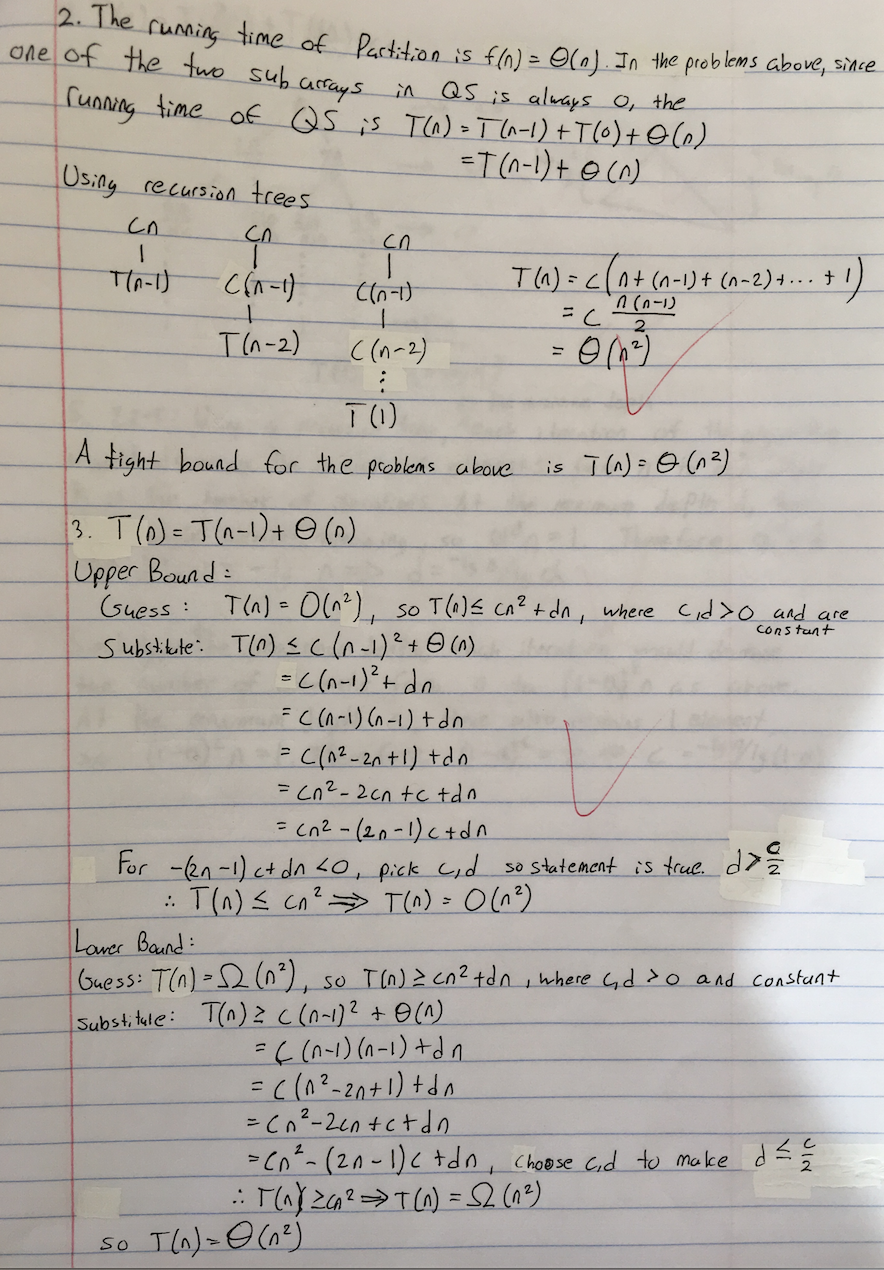 2. The running time of Partition is f(n) = Θ(n). In the problems above, since
one of the two sub arrays in QS is always 0, the
running time of QS is T(n) = T(n-1) + T(0) + Θ(n)
= T(n-1) + Θ(n)
Using recursion trees
Cn Cn Cn
T(n-1) C(n-1) C(n-1)
T(n-2) C(n-2)
⋮
T(1)
T(n) = c(n + (n-1) + (n-2) + ... + 1)
= c n(n-1)/2
= Θ(n²)
A tight bound for the problems above is T(n) = Θ(n²)
3. T(n) = T(n-1) + Θ(n)
Upper Bound:
Guess: T(n) = O(n²), so T(n) ≤ cn² + dn, where c,d > 0 and are
constant
Substitute: T(n) ≤ c(n-1)² + Θ(n)
= c(n-1)² + dn
= c(n-1)(n-1) + dn
= c(n²-2n+1) + dn
= cn² - 2cn + c + dn
= cn² - (2n-1)c + dn
For -(2n-1)c + dn < 0, pick c,d so statement is true. d > c/2
∴ T(n) ≤ cn² ⟹ T(n) = O(n²)
Lower Bound:
Guess: T(n) = Ω(n²), so T(n) ≥ cn² + dn, where c,d > 0 and constant
Substitute: T(n) ≥ c(n-1)² + Θ(n)
= c(n-1)(n-1) + dn
= c(n²-2n+1) + dn
= cn² - 2cn + c + dn
= cn² - (2n-1)c + dn, choose c,d to make d ≤ c/2
∴ T(n) ≥ cn² ⟹ T(n) = Ω(n²)
so T(n) = Θ(n²)